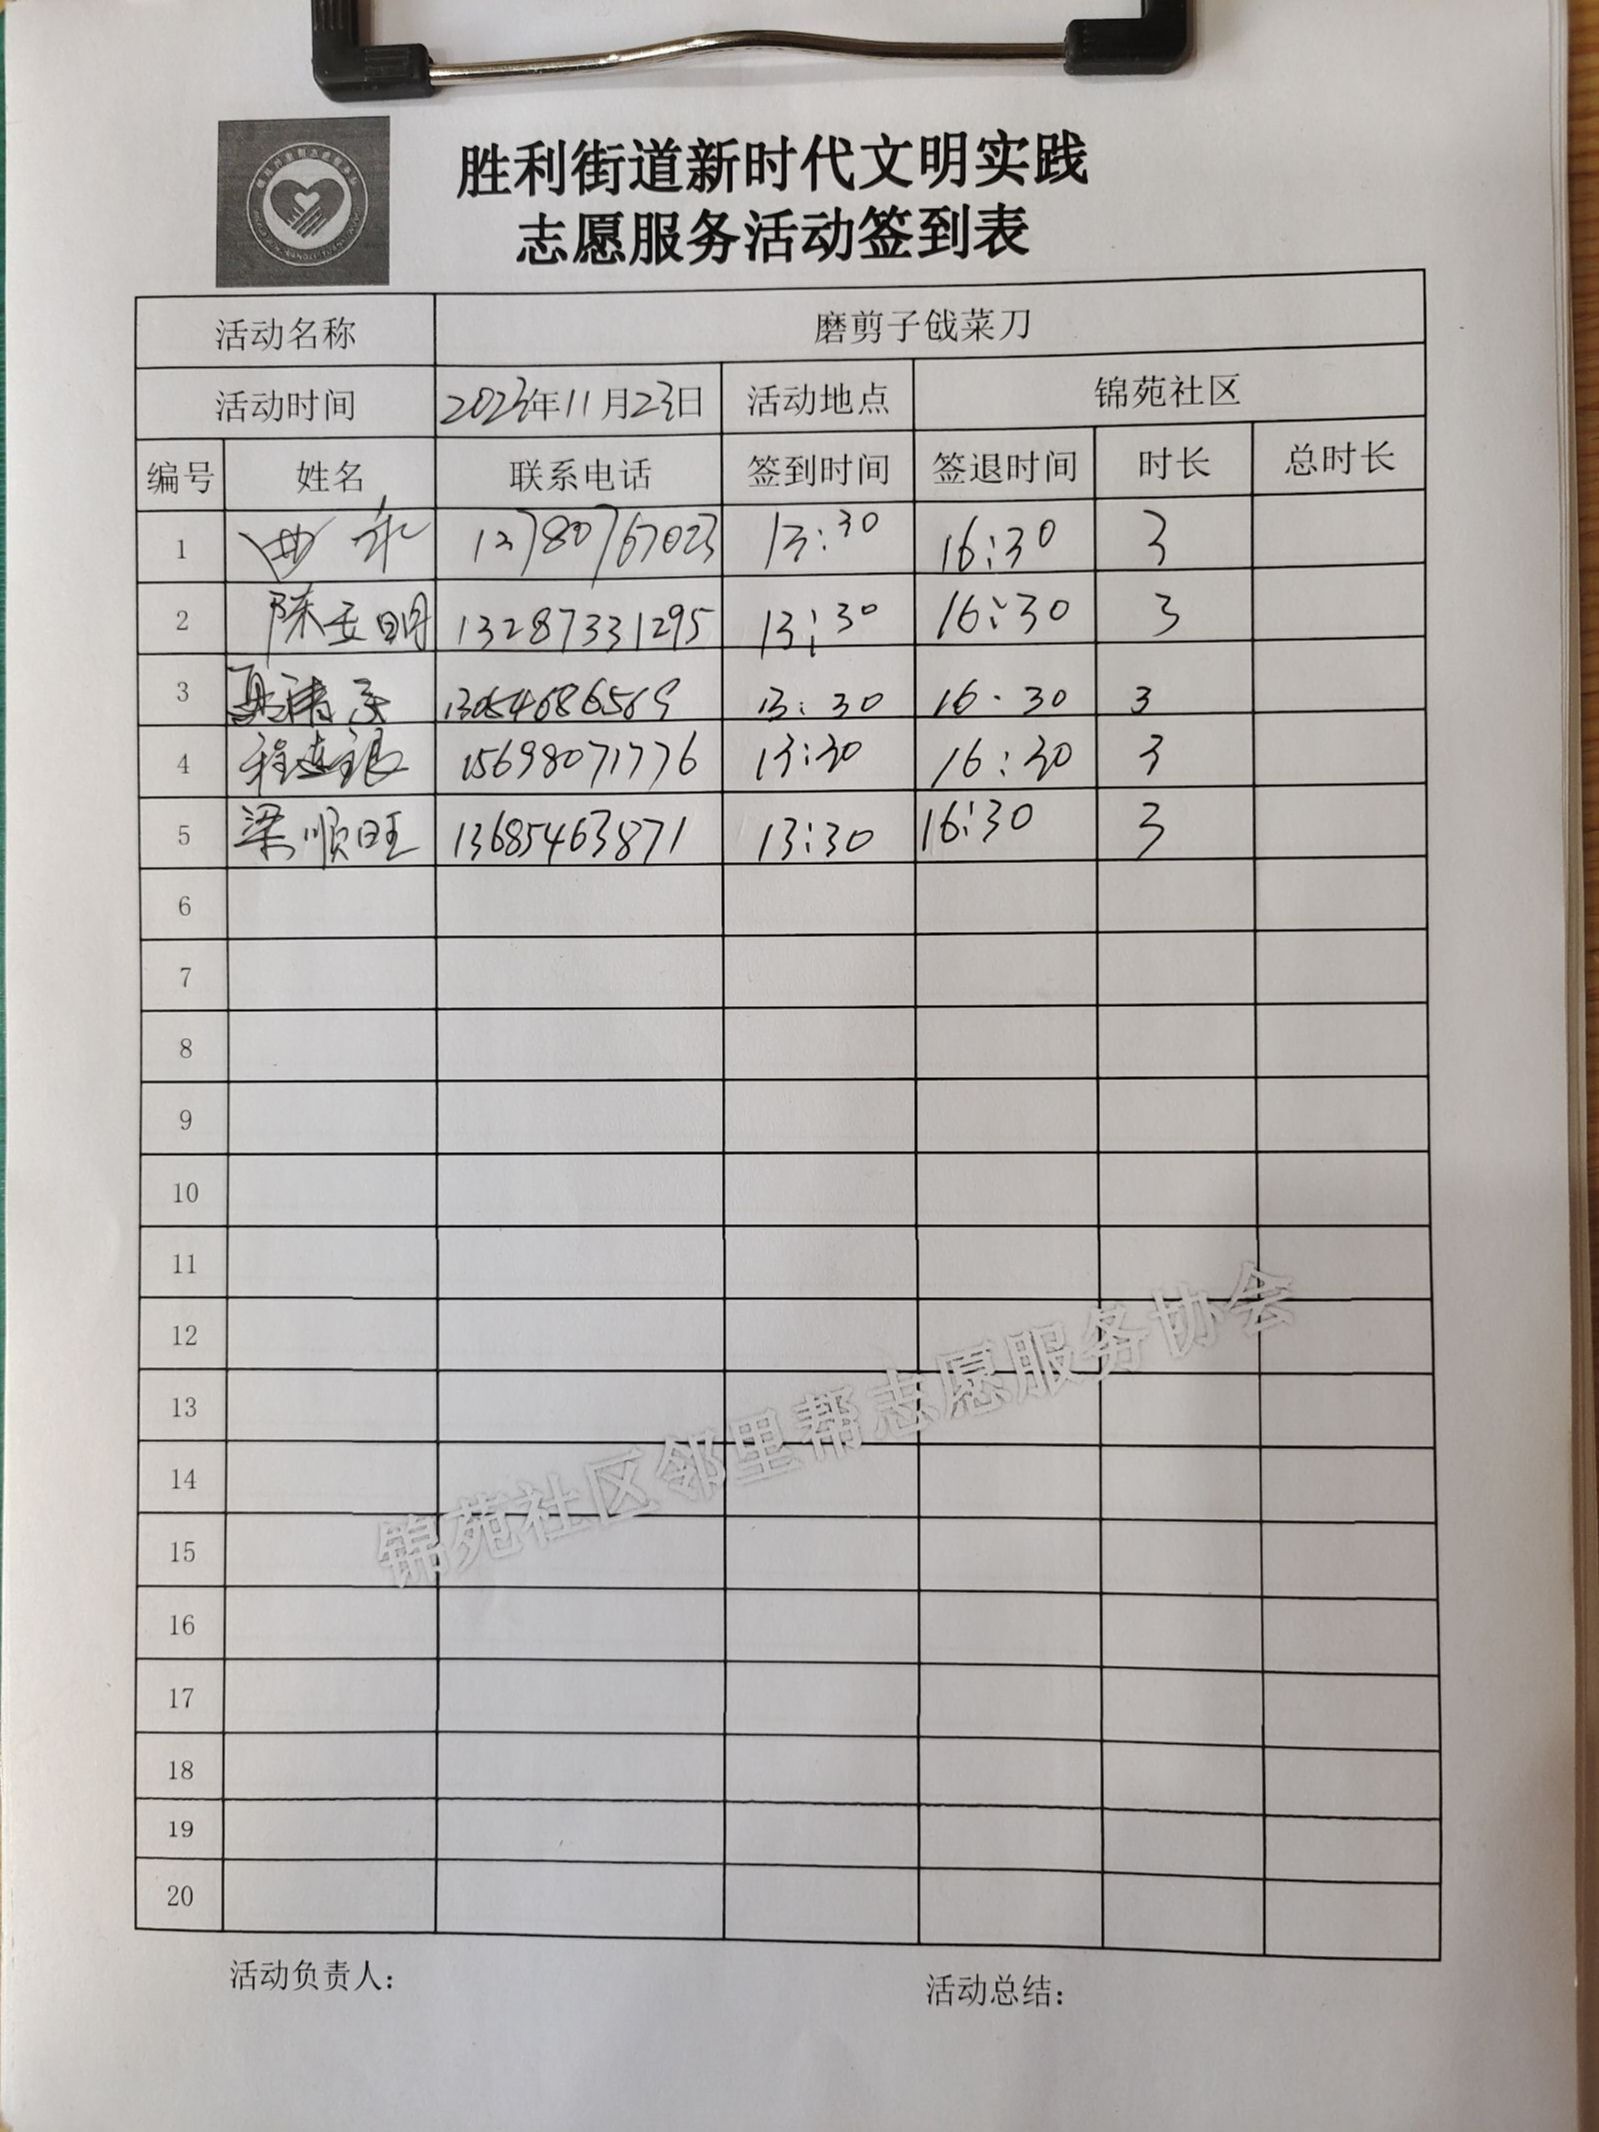 胜利街道新时代文明实践
志愿服务活动签到表
活动名称 磨剪子戗菜刀
活动时间 2023年11月23日 活动地点 锦苑社区
编号 姓名 联系电话 签到时间 签退时间 时长 总时长
1 13780767023 13:30 16:30 3
2 陈玉明 13287331295 13:30 16:30 3
3 13054686569 13:30 16·30 3
4 程连银 15698071776 13:30 16:30 3
5 梁顺旺 13685463871 13:30 16:30 3
6
7
8
9
10
11
12
13
14
15
16
17
18
19
20
锦苑社区邻里帮志愿服务协会
活动负责人: 活动总结: